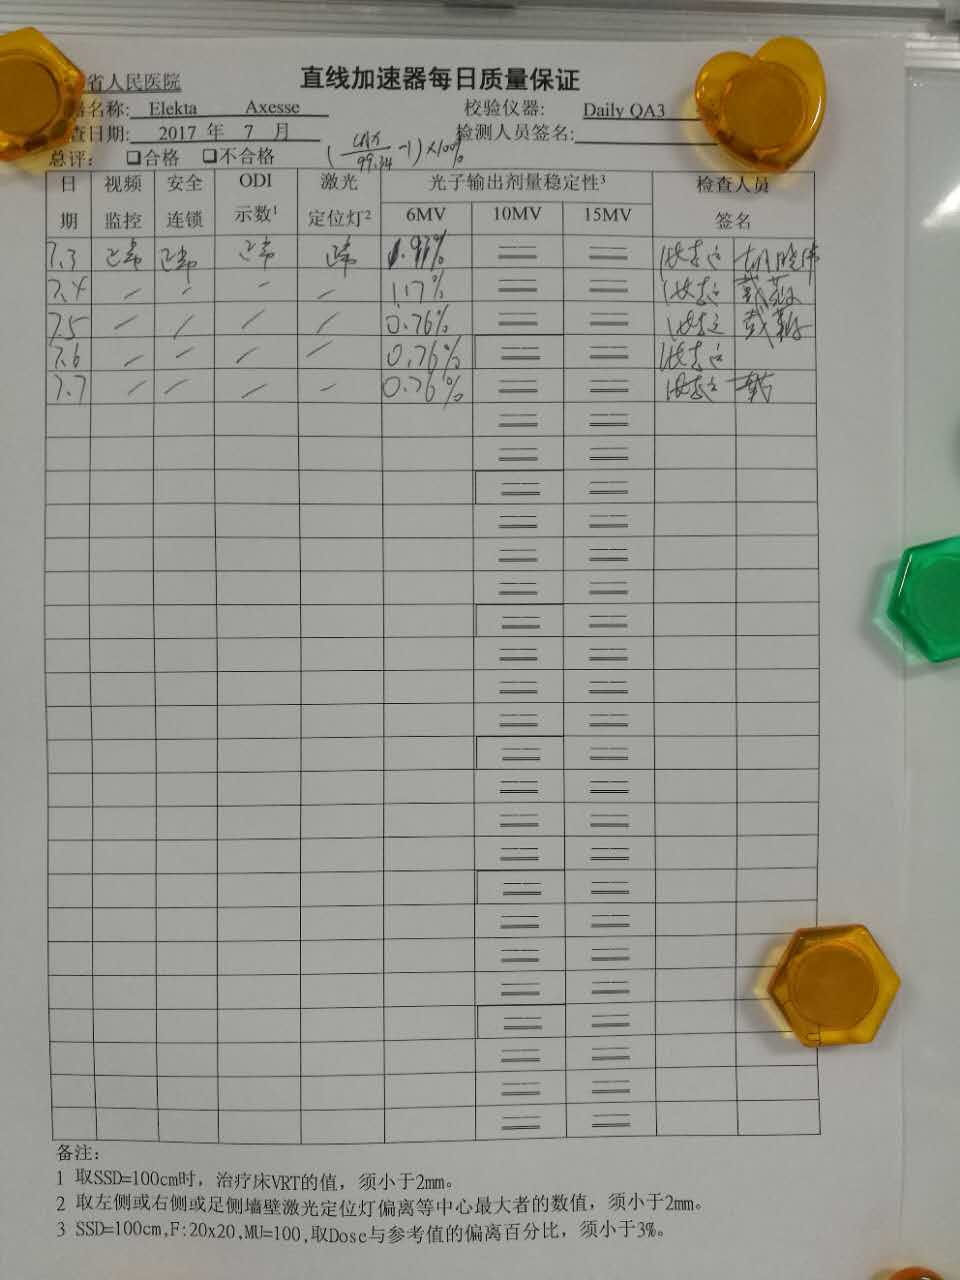 省人民医院 直线加速器每日质量保证
名称: Elekta Axesse 校验仪器: Daily QA3
查日期: 2017 年 7 月 检测人员签名:
总评: □合格 □不合格 ( /99.34 -1)×100%
日期 视频监控 安全连锁 ODI示数¹ 激光定位灯² 光子输出剂量稳定性³ 检查人员签名
6MV 10MV 15MV
7.3 正常 正常 正常 正常
7.4 1.17%
7.5 0.76%
7.6 0.76%
7.7 0.76%
备注:
1 取SSD=100cm时，治疗床VRT的值，须小于2mm。
2 取左侧或右侧或足侧墙壁激光定位灯偏离等中心最大者的数值，须小于2mm。
3 SSD=100cm,F:20x20,MU=100,取Dose与参考值的偏离百分比，须小于3%。